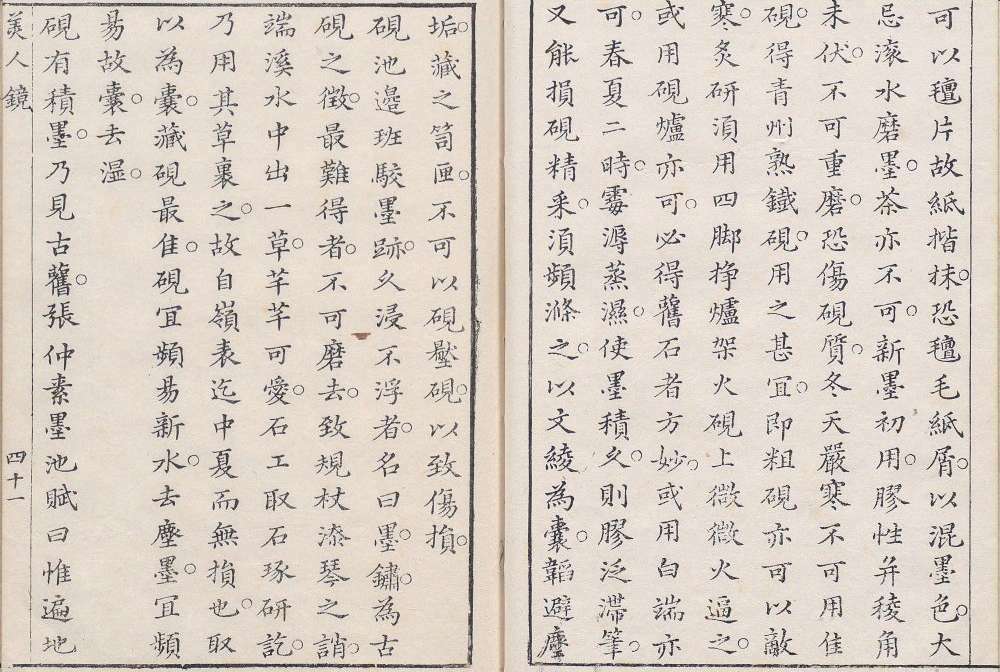 可以氊片故紙揩抹。恐氊毛紙屑。以混墨色。大
忌滾水磨墨。茶亦不可。新墨初用。膠性并稜角
未伏。不可重磨。恐傷硯質。冬天嚴寒不可用佳
硯。得青州熟鐵硯。用之甚宜。即粗硯亦可以敵
寒。炙研湏用四脚掙爐架火硯上微微火逼之。
或用硯爐亦可。必得舊石者方妙。或用白端亦
可。春夏二時。霉溽蒸濕。使墨積久則膠泛滯筆。
又能損硯精采。湏頻滌之。以文綾為囊。韜避塵
垢。藏之笥匣。不可以硯壓硯。以致傷損。
硯池邊班駁墨跡。久浸不浮者。名曰墨。鏽。為古
硯之徴。最難得者。不可磨去。致規杖漆琴之誚。
端溪水中出一草。芊芊可愛。石工取石琢硏訖。
乃用其草裹之。故自嶺表迄中夏而無損也。取
以為囊。藏硯最佳。硯宜頻易新水。去塵墨。宜頻
易故囊。去湿。
硯有積墨。乃見古舊。張仲素墨池賦曰惟遍地
美人鏡
四十一